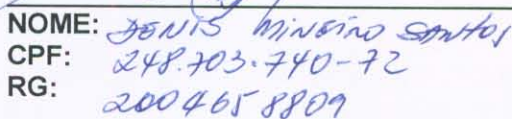 NOME: DENIS MINEIRO SANTOS
CPF: 248.703.740-72
RG: 2004658809